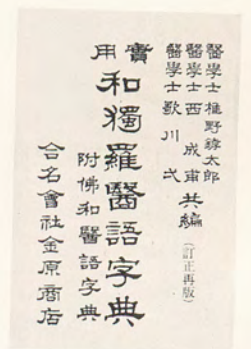 醫學士 椎野鋳太郎
醫學士 西 成甫 共編
醫學士 歌川 弌
(訂正再版)
實用
和獨羅醫語字典
附佛和醫語字典
合名會社金原商店